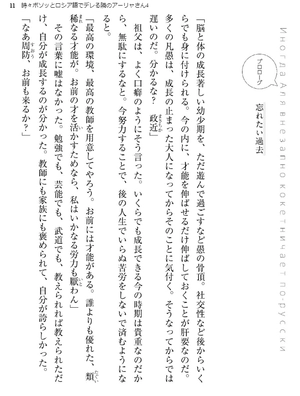 11　時々ボソッとロシア語でデレる隣のアーリャさん4
Иногда Аля внезапно кокетничает по-русски
プロローグ
忘れたい過去
「脳と体の成長著しい幼少期を、ただ遊んで過ごすなど愚の骨頂。社交性など後からいく
らでも身に付けられる。今の内に、才能を伸ばせるだけ伸ばしておくことが肝要なのだ。
多くの凡愚は、成長の止まった大人になってからそのことに気付く。そうなってからでは
遅いのだ。なぁ？　政近」
　祖父は、よく口癖のようにそう言った。いくらでも成長できる今の時期は貴重なのだか
ら、無駄にするなと。今努力することで、後の人生でいらぬ苦労をしないで済むようにな
ると。
「最高の環境、最高の教師を用意してやろう。お前には才能がある。誰よりも優れた、類
稀なる才能が。お前の才を活かすためなら、私はいかなる労力も厭わん」
　その言葉に嘘はなかった。勉強でも、芸能でも、武道でも、教えられれば教えられただ
け、自分が成長するのが分かった。教師にも家族にも褒められて、自分が誇らしかった。
「なあ周防。お前も来るか？」